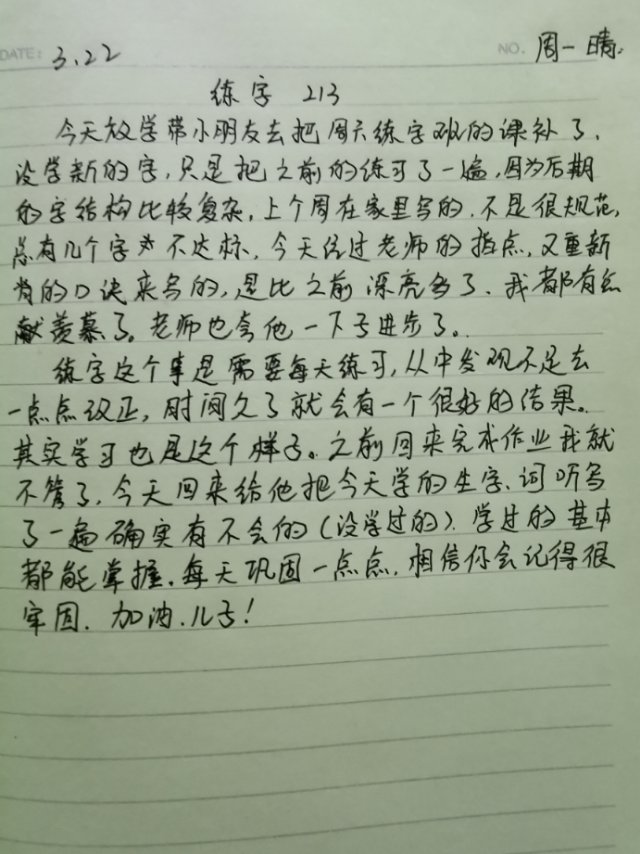 DATE: 3.22 NO. 周一 晴.
练字 213
今天放学带小朋友去把周六练字班的课补了.
没学新的字,只是把之前的练习了一遍,因为后期
的字结构比较复杂,上个周在家里写的.不是很规范,
总有几个字不达标.今天经过老师的指点,又重新
背的口诀来写的,是比之前漂亮多了.我都有些
羡慕了。老师也夸他一下子进步了。
练字这个事是需要每天练习,从中发现不足去
一点点改正,时间久了就会有一个很好的结果。
其实学习也是这个样子。之前回来完成作业我就
不管了,今天回来给他把今天学的生字.词听写
了一遍确实有不会的(没学过的).学过的基本
都能掌握.每天巩固一点点.相信你会记得很
牢固.加油.儿子!